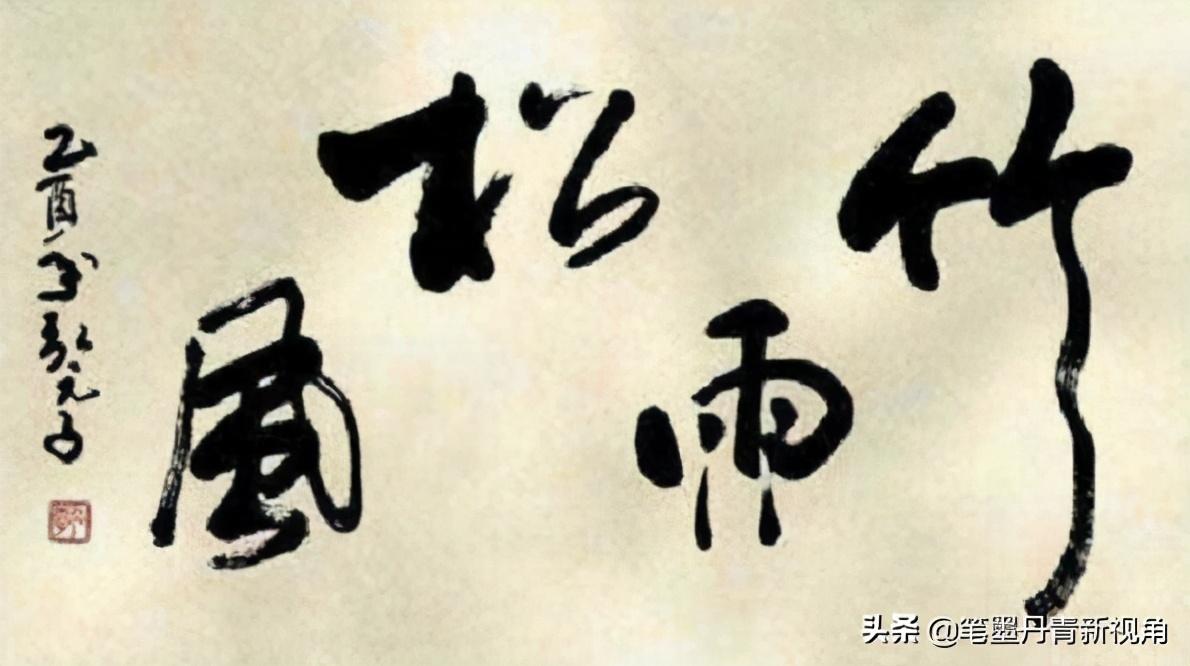 竹雨
松風
乙酉年
头条 @笔墨丹青新视角